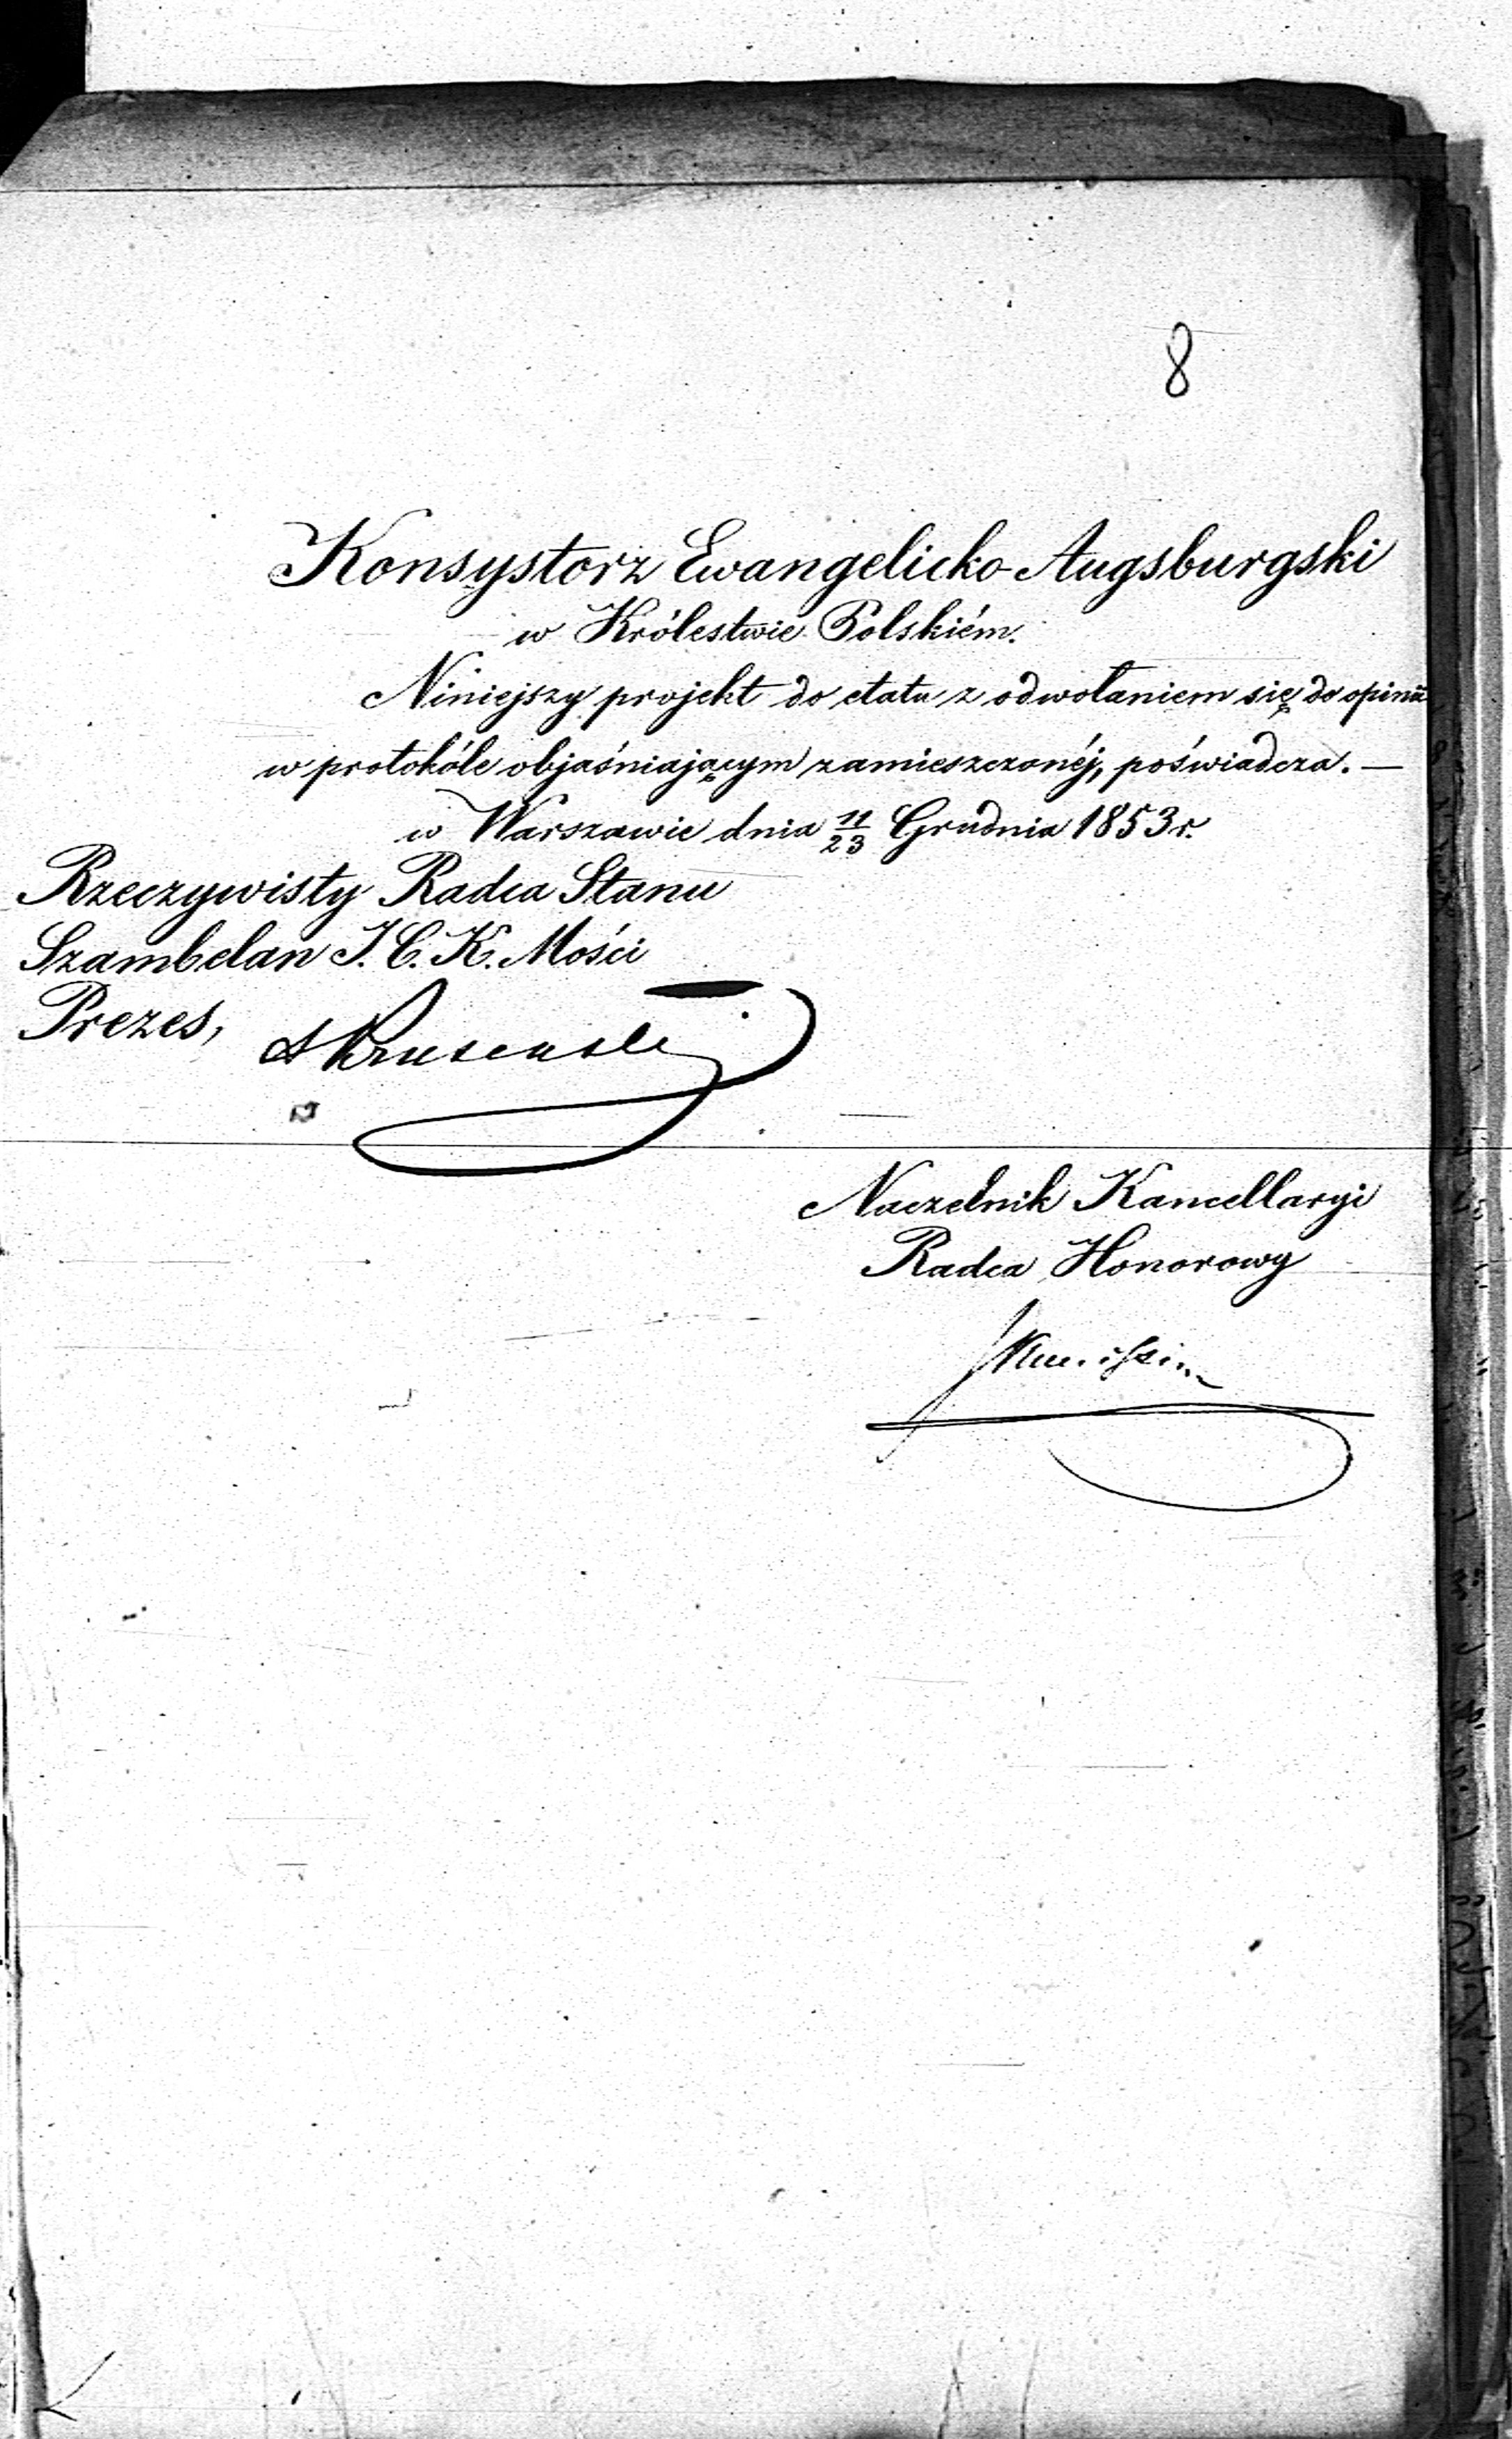 8
Konsystorz Ewangelicko-Augsburgski
w Królestwie Polskiém.
Niniejszy projekt do etatu z odwołaniem się do opinii
w protokóle objaśniającym zamieszczonéj, poświadcza. —
w Warszawie dnia 11/23 Grudnia 1853 r.
Rzeczywisty Radca Stanu
Szambelan J. C. K. Mości
Prezes,
Naczelnik Kancellaryi
Radca Honorowy